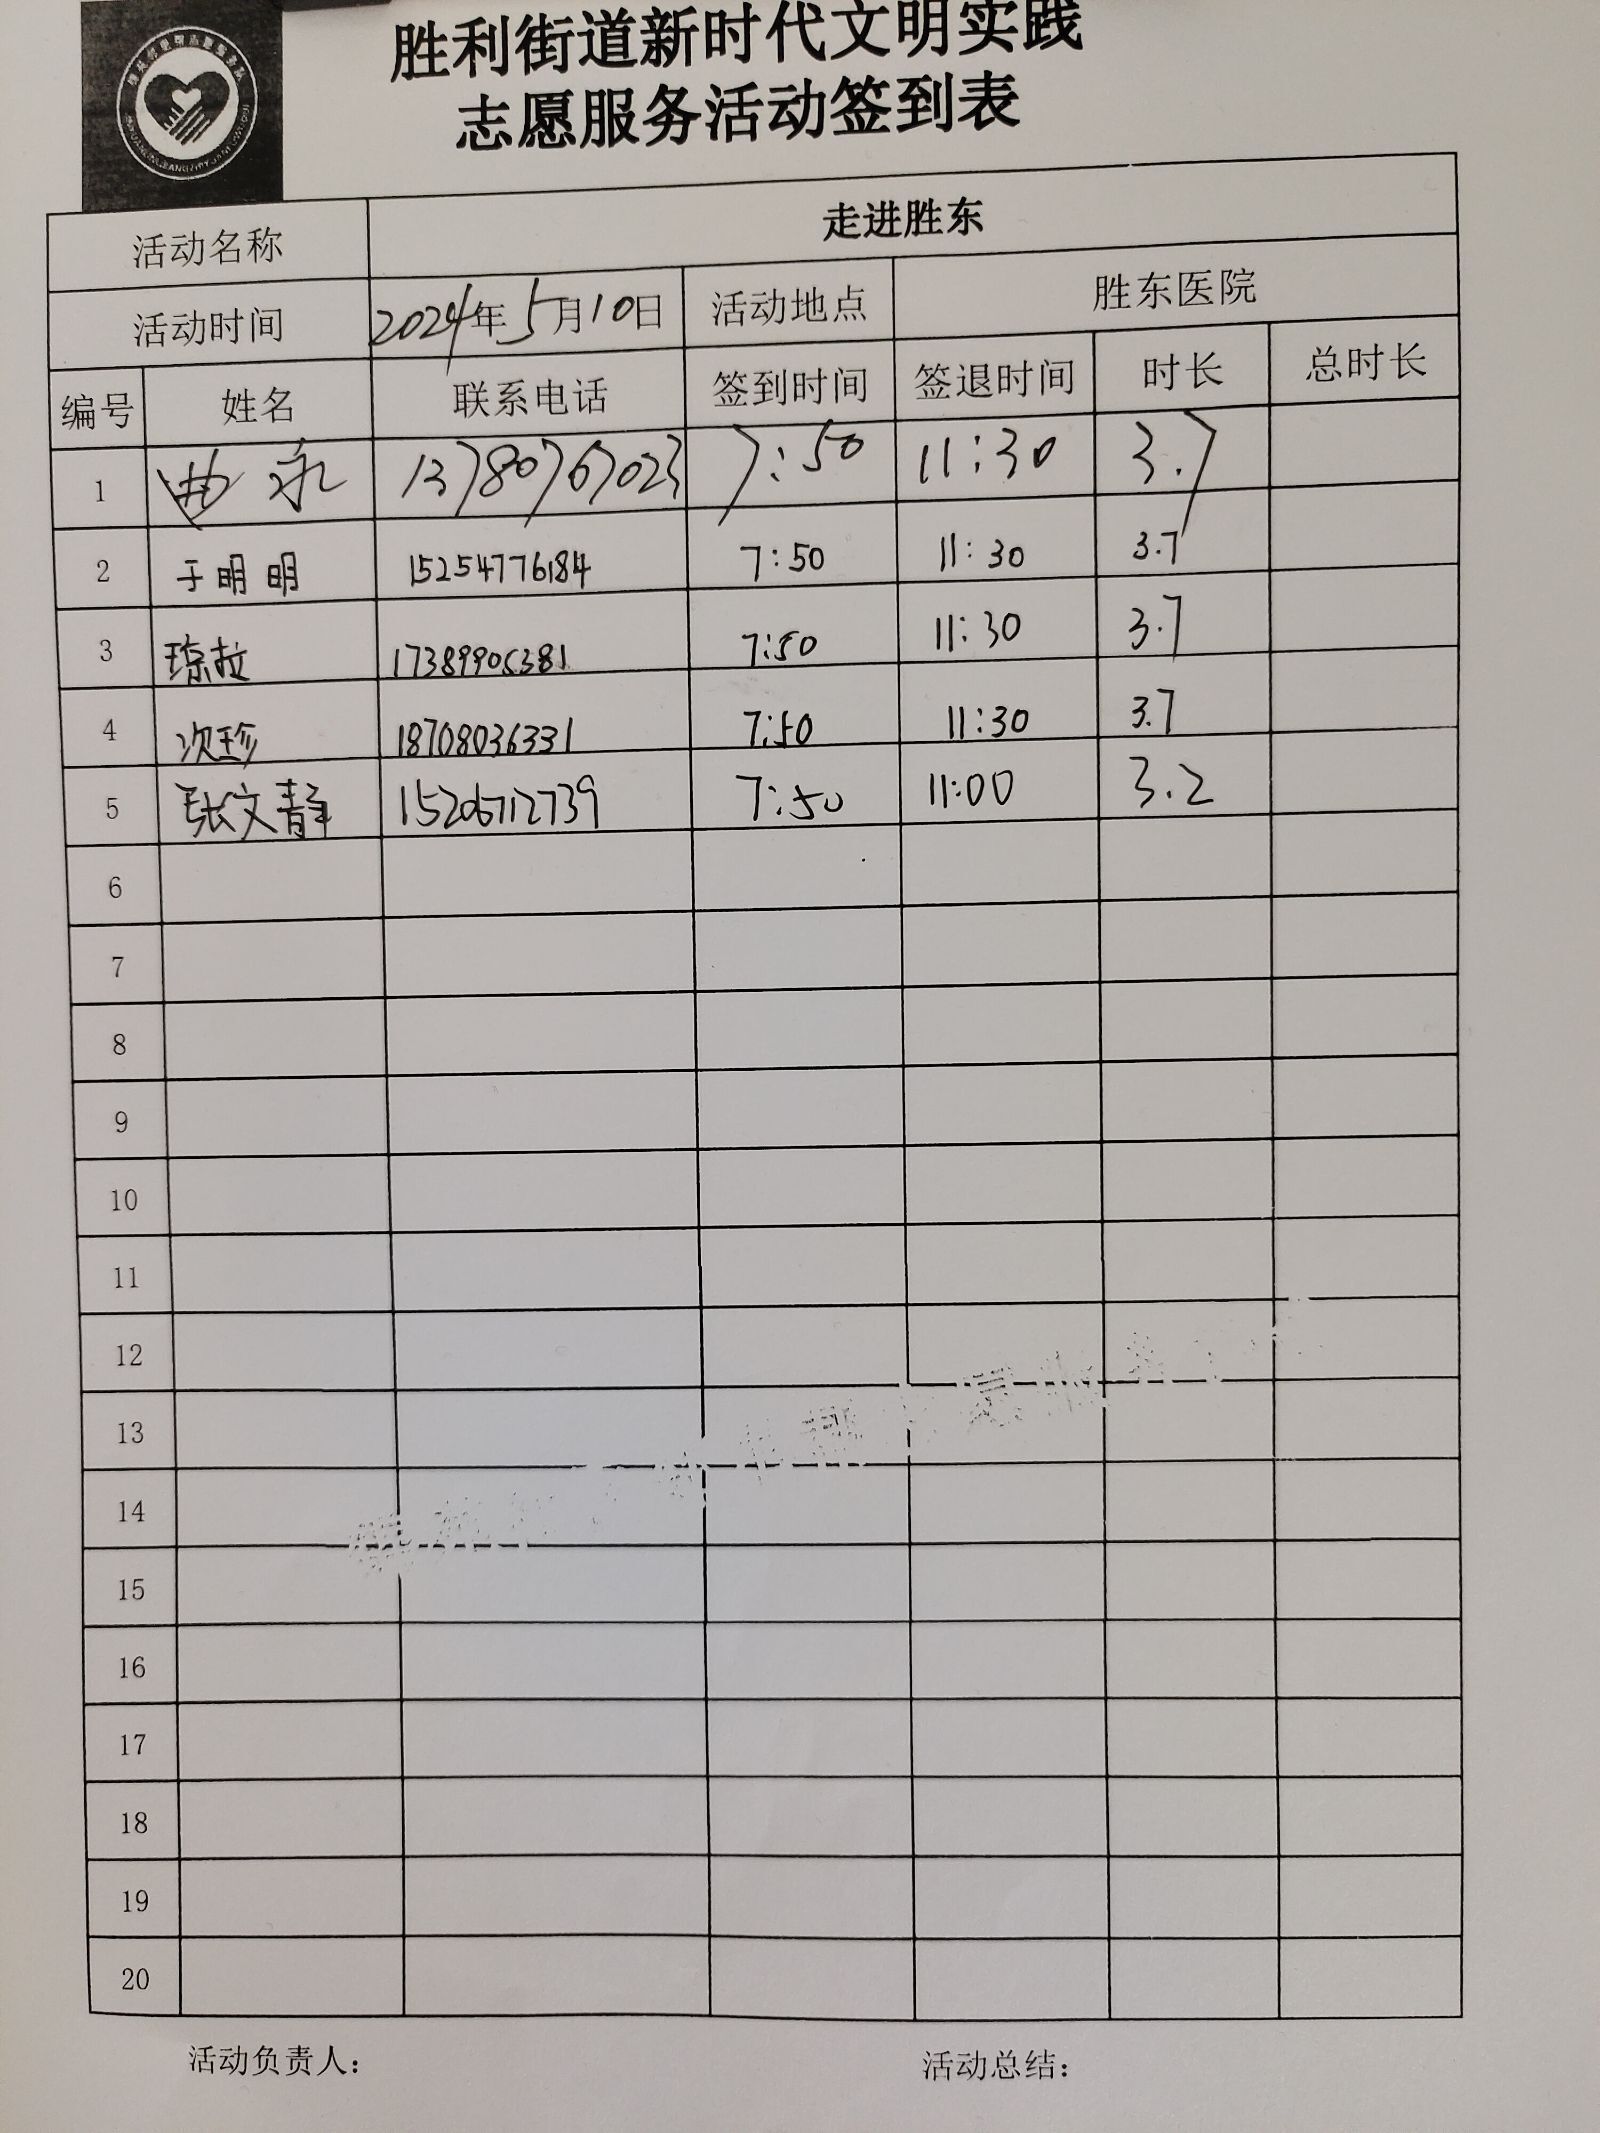 胜利街道新时代文明实践
志愿服务活动签到表
活动名称 走进胜东
活动时间 2024年5月10日 活动地点 胜东医院
编号 姓名 联系电话 签到时间 签退时间 时长 总时长
1 曲永 13780767023 7:50 11:30 3.7
2 于明明 15254776184 7:50 11:30 3.7
3 琼拉 7:50 11:30 3.7
4 次珍 18708036331 7:50 11:30 3.7
5 张文静 15206712739 7:50 11:00 3.2
6
7
8
9
10
11
12
13
14
15
16
17
18
19
20
活动负责人： 活动总结：